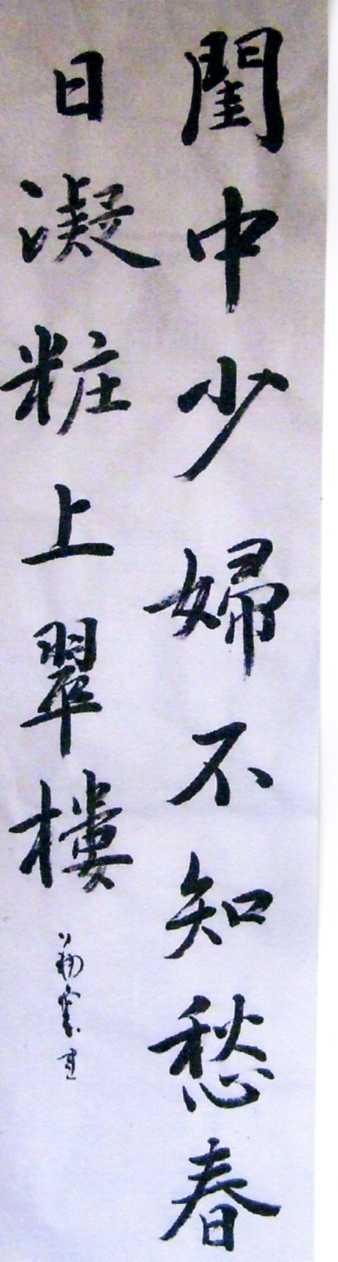 閨中少婦不知愁春
日凝粧上翠樓